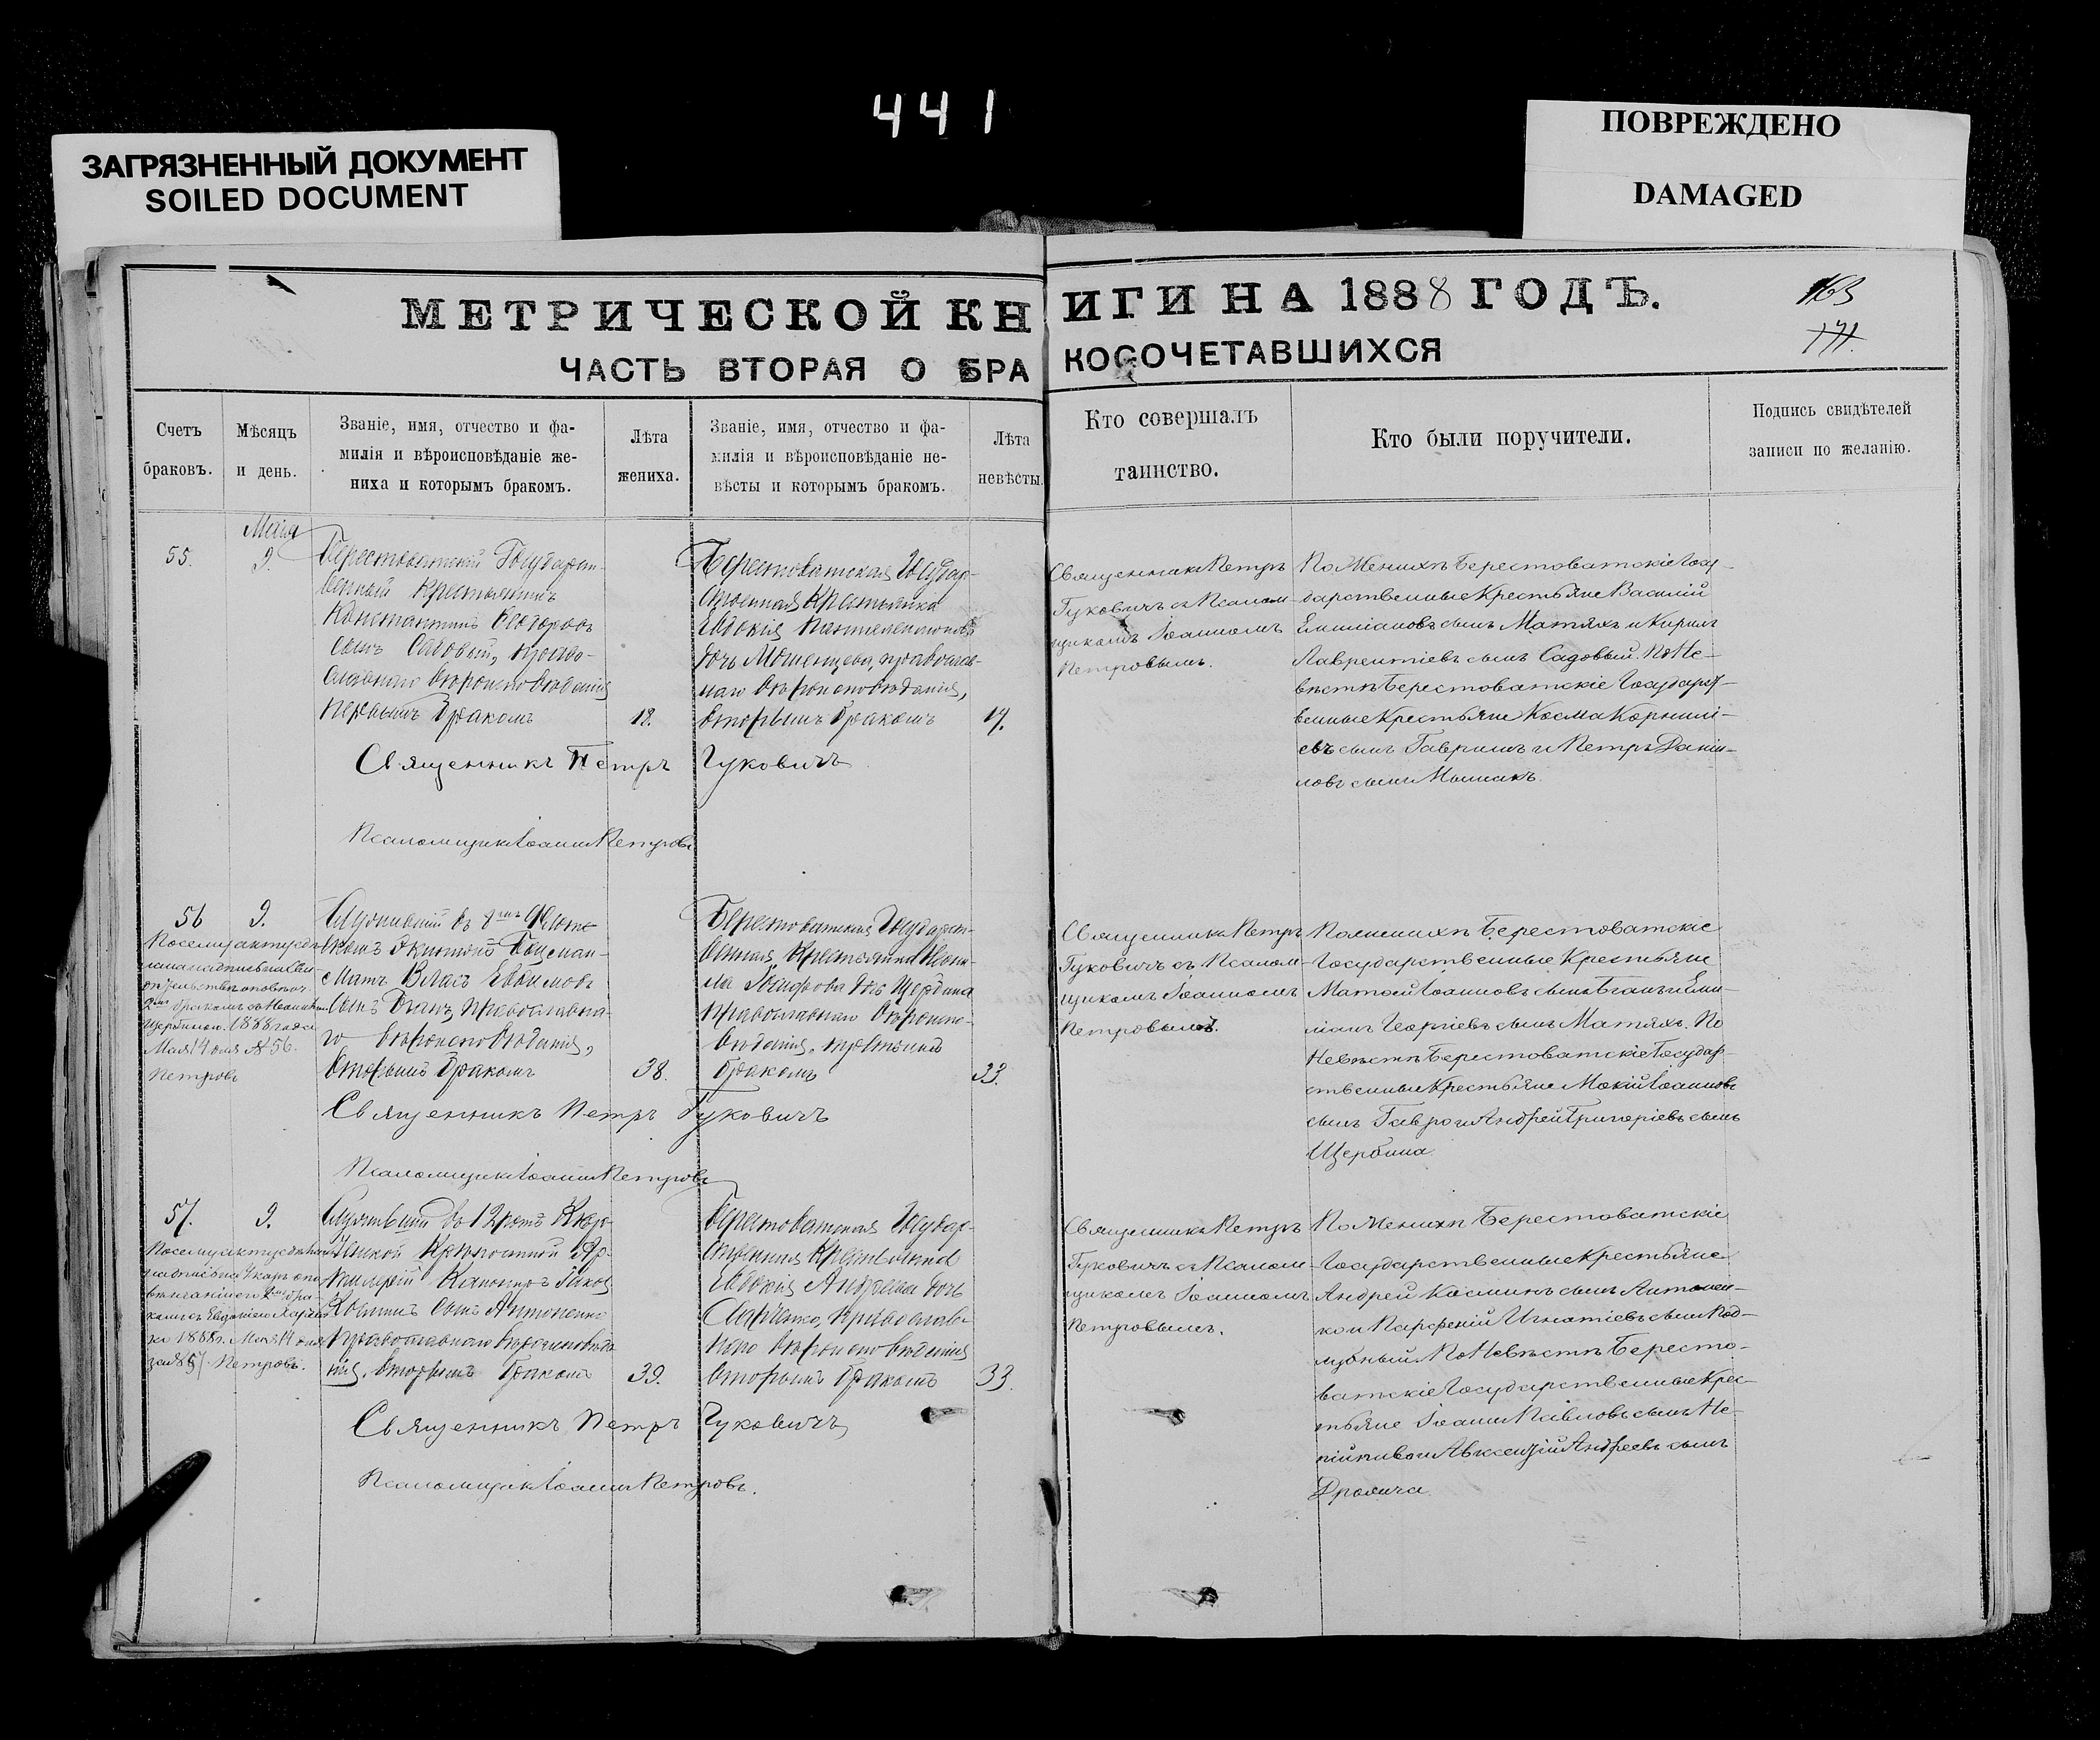 441
ЗАГРЯЗНЕННЫЙ ДОКУМЕНТ
SOILED DOCUMENT
ПОВРЕЖДЕНО
DAMAGED
МЕТРИЧЕСКОЙ КНИГИ НА 1888 ГОДЪ.
163
171.
ЧАСТЬ ВТОРАЯ О БРАКОСОЧЕТАВШИХСЯ
Счетъ
браковъ.
Мѣсяцъ
и день.
Званіе, имя, отчество и фа-
милія и вѣроисповѣданіе же-
ниха и которымъ бракомъ.
Лѣта
жениха.
Званіе, имя, отчество и фа-
милія и вѣроисповѣданіе не-
вѣсты и которымъ бракомъ.
Лѣта
невѣсты.
Кто совершалъ
таинство.
Кто были поручители.
Подпись свидѣтелей
записи по желанію.
55.
Мая
9.
Берестоватский Государст-
венный Крестьянинъ
Константинъ Ѳеодоровъ
сынъ Садовый, Право-
славнаго вѣроисповѣданія
первымъ бракомъ
18.
Берестоватская Государ-
ственная Крестьянка
Евдокія Пантелеимонова
дочь Мошенцева, православ-
наго вѣроисповѣданія,
вторымъ бракомъ
19.
Священникъ Петръ
Гуковичъ съ Псалом-
щикомъ Іоанномъ
Петровымъ.
По Женихѣ Берестоватскіе Госу-
дарственные Крестьяне Василій
Емиліановъ сынъ Матяхъ и Кирилъ
Лаврентіевъ сынъ Садовый. По Не-
вѣстѣ Берестоватскіе Государст-
венные Крестьяне Косма Корнилі-
евъ сынъ Гаврилъ и Петръ Даніи-
ловъ сынъ
Священникъ Петръ Гуковичъ
Псаломщикъ Іоаннъ Петровъ
56
9.
Служившій въ 8мъ Флотс-
комъ Экипажѣ Боцман-
матъ Власъ Евѳимовъ
сынъ Баганъ, православна-
го вѣроисповѣданія,
вторымъ бракомъ
38.
Берестоватская Государст-
венная Крестьянка
дочь Щербина
Православнаго вѣроиспо-
вѣданія, третьимъ
бракомъ
33.
По сему акту
2мъ бракомъ
Щербиной. 1888 года
Мая 14 дня № 56.
Петровъ
Священникъ Петръ
Гуковичъ съ Псалом-
щикомъ Іоанномъ
Петровымъ.
По женихѣ Берестоватскіе
Государственные Крестьяне
Матѳей Іоанновъ сынъ Баганъ и Еми-
ліанъ Георгіевъ сынъ Матяхъ. По
Невѣстѣ Берестоватскіе Государ-
ственные Крестьяне Мокій Іоанновъ
сынъ Гавро и Андрей Григоріевъ сынъ
Щербина.
Священникъ Петръ Гуковичъ
Псаломщикъ Іоаннъ Петровъ
57.
9.
Служившій въ 12 ротѣ Кер-
ченской Крѣпостной Ар-
тиллеріи Канониръ Іаковъ
Косминъ сынъ Антоненко
Православнаго вѣроисповѣда-
нія, вторымъ бракомъ
39.
Берестоватская Государ-
ственная Крестьянка
Евдокія Андреева дочь
Православ-
наго вѣроисповѣданія
вторымъ бракомъ
33.
По сему акту
1888 г. Мая 14 дня
за № 57. Петровъ.
Священникъ Петръ
Гуковичъ съ Псалом-
щикомъ Іоанномъ
Петровымъ.
По Женихѣ Берестоватскіе
Государственные Крестьяне
Андрей Косминъ сынъ Антонен-
ко и Парѳеній Игнатіевъ сынъ Под-
лубный. По Невѣстѣ Бересто-
ватскіе Государственные Крес-
тьяне Іоаннъ Павловъ сынъ Не-
пійпиво и Авксентій Андреевъ сынъ
Священникъ Петръ Гуковичъ
Псаломщикъ Іоаннъ Петровъ.